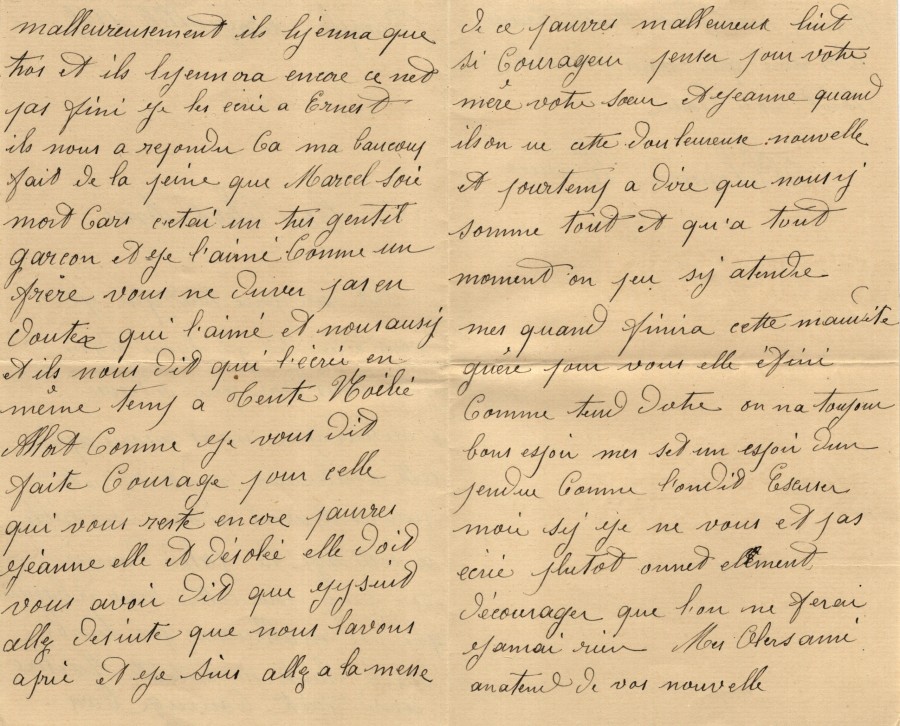 malleureusement ils lyenna que
tros et ils lyennora encore ce net
pas fini eje lui écrie a Ernest
ils nous a repondu Ca ma baucoup
fait de la peine que Marcel soie
mort Cars cetai un tres gentil
garcon et eje l'aimé Comme un
frère vous ne duver pas en
doutez qui l'aimé et nous ausij
et ils nous dit qui l'écri en
même temp a Tente Noélie
Allort Comme eje vous dit
faite Courage pour celle
qui vous reste encore pauvres
ejéanne elle et désolée elle doit
vous avoir dit que ejysuid
allez desuite que nous lavons
aprie et eje suis allez a la messe
de ce pauvres malleureux
si Courageux penser pour votre
mère votre sœur et ejeanne quand
ils on ue cette douleureuse nouvelle
et pourtemp a dire que nousij
somme tout et qu'a tout
moment on peu sij atendre
mes quand finira cette maudite
guère pour vous elle éfini
Comme tend dotre on na toujour
bons espoir mes set un espoir dun
pendue Comme l'ondit Escuser
moi sij eje ne vous et pas
écrie plutot onnet element
décourager que l'on ne ferai
ejamai rien Mes Chers ami
anatend de vos nouvelle